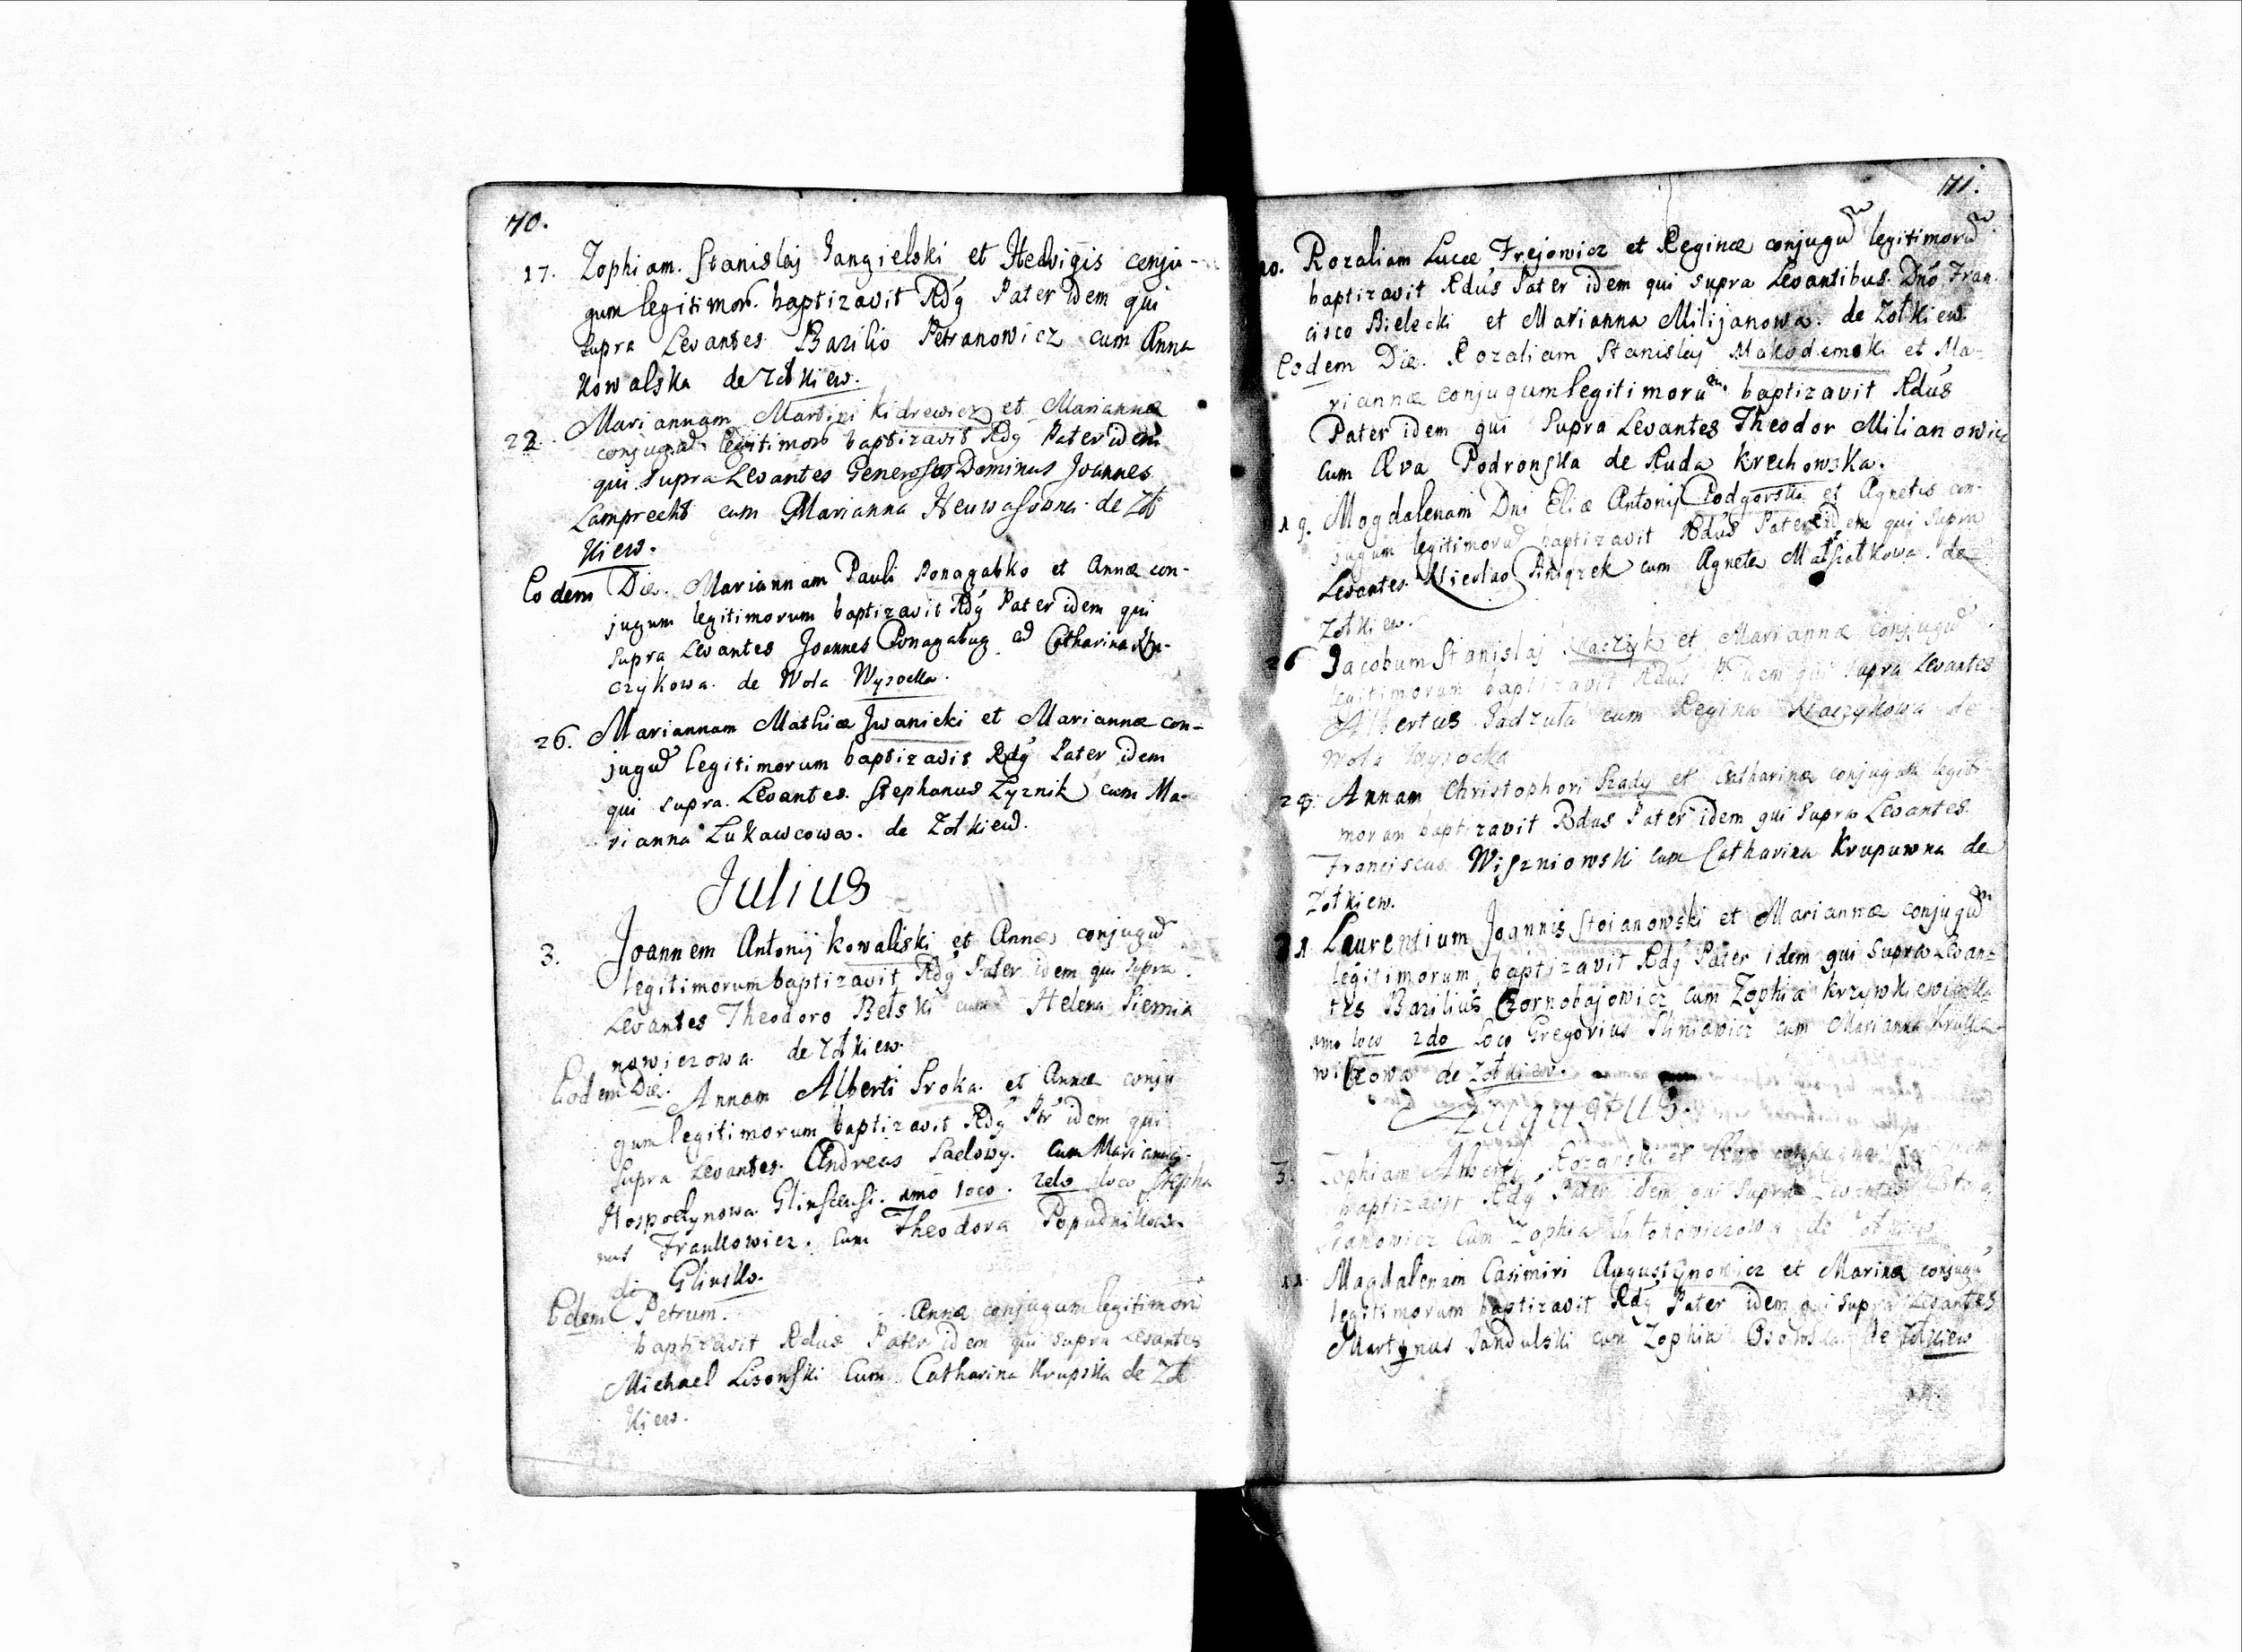 70.
17. Zophiam. Stanislaj Jangielski et Hedvigis conju-
gum legitimor. baptizavit Rdg Pater idem qui
supra Levantes Bazilio Petranowicz cum Anna
Kowalska de Zołkiew.
22. Mariannam Martini Kidrewicz et Mariannæ
legitimor baptizavit Rdg Pater idem
qui supra Levantes Generosus Dominus Joannes
Lamprecht cum Marianna de Zoł
kiew.
Eodem Die. Mariannam Pauli Ponagabko et Annæ con-
jugum legitimorum baptizavit Rdg Pater idem qui
supra Levantes Joannes et Catharina
czykowa. de Wola Wysocka.
26. Mariannam Mathiæ Jwanicki et Mariannæ con-
jugu legitimorum baptizavit Rdg Pater idem
qui supra. Levantes. Stephanus Zyznik cum Ma-
rianna Lukawcowa. de Zołkiew.
Julius
3. Joannem Antonij Kowalski et Annæ conjugu
legitimorum baptizavit Rdg Pater idem qui supra.
Levantes Theodoro Belski cum Helena Siemia
nowiczowa de Zołkiew.
Eodem Die. Annam Alberti Sroka. et Annæ conju
gum legitimorum baptizavit Rdg Ptr idem qui
supra Levantes. Andreas Sadowy. cum Marianna
Hospodynowa Glinscensi. 1mo loco. 2do loco Stepha
nus Frankowicz. cum Theodora
de Glinsko.
Eodem Petrum. Annæ conjugum legitimoru
baptizavit Rdus Pater idem qui supra Levantes
Michael Lisowski cum Catharina Krupska de Zoł
kiew.
71.
10. Rozaliam Lucæ Frejowicz et Reginæ conjugu legitimoru
baptizavit Rdus Pater idem qui supra Levantibus. Dno Fran
cisco Bielecki et Marianna Milijanowa. de Zołkiew.
Eodem Die. Rozaliam Stanislaj et Ma-
riannæ conjugum legitimorum baptizavit Rdus
Pater idem qui supra Levantes Theodor Milianowicz
cum Æva Podronska de Ruda Krechowska.
19. Magdalenam Dni Eliæ Antonij Podgorski et Agnetis con-
jugum legitimoru baptizavit Rdus Pater idem qui supra
Levantes Nicolao cum Agneta de
Zołkiew.
26 Jacobum Stanislaj Kaczyk et Mariannæ conjugu
legitimorum baptizavit Rdus P idem qui supra Levantes
Albertus Jadzuta cum Regina Kaczykowa de
Wola Wysocka
Annam Christophori Szady et Catharinæ conjugum legiti-
morum baptizavit Rdus Pater idem qui supra Levantes.
Franciscus Wiszniowski cum Catharina Krupuwna de
Zołkiew.
31. Laurentium Joannis Stoianowski et Mariannæ conjugum
legitimorum baptizavit Rdg Pater idem qui supra Levan-
tes Bazilius Czornobajowicz cum Zophia
1mo loco 2do loco Gregorius cum Marianna
de Zołkiew.
Augustus.
3. Zophiam Alberti Kozarski et
baptizavit Rdg Pater idem qui supra Levantes
cum Zophia Antonowiczowa de Zołkiew
11. Magdalenam Casimiri Augustynowicz et Marinæ conjugu
legitimorum baptizavit Rdg Pater idem qui supra Levantes
Martynus Jandulski cum Zophia de Zołkiew